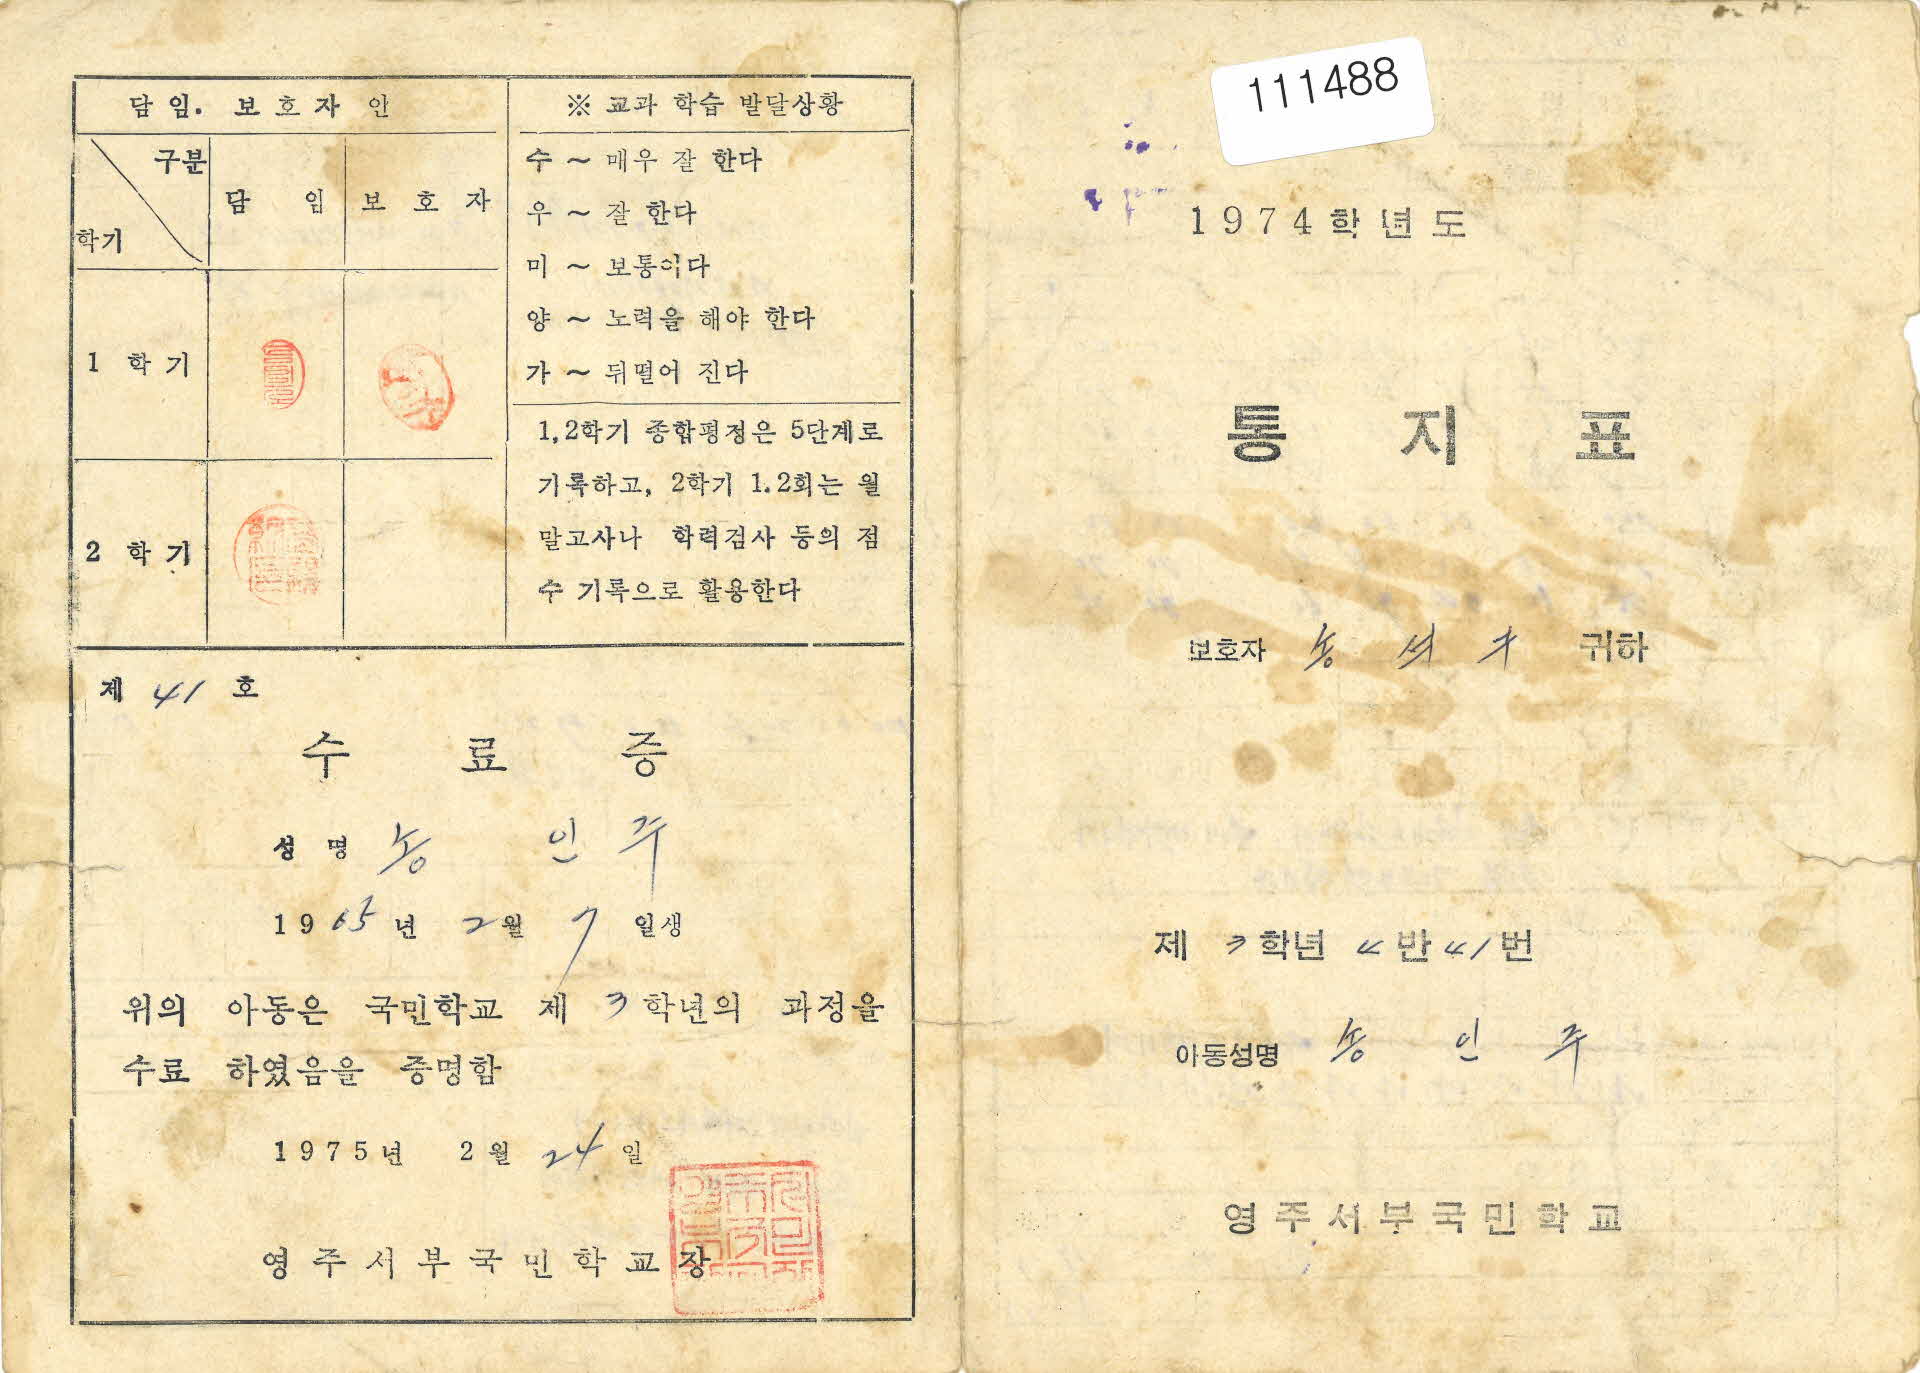 담임. 보호자 인
구분
학기
담 임
보 호 자
1 학기
2 학기
※ 교과 학습 발달상황
수 ~ 매우 잘 한다
우 ~ 잘 한다
미 ~ 보통이다
양 ~ 노력을 해야 한다
가 ~ 뒤떨어 진다
1,2학기 종합평정은 5단계로
기록하고, 2학기 1.2회는 월
말고사나 학력검사 등의 점
수 기록으로 활용한다
제 41 호
수 료 증
성 명 송 인 주
1965년 2월 7일생
위의 아동은 국민학교 제 3학년의 과정을
수료 하였음을 증명함
1975년 2월 24일
영주서부국민학교장
111488
1974학년도
통 지 표
보호자 송 석 귀하
제 3학년 4반 41번
아동성명 송 인 주
영주서부국민학교